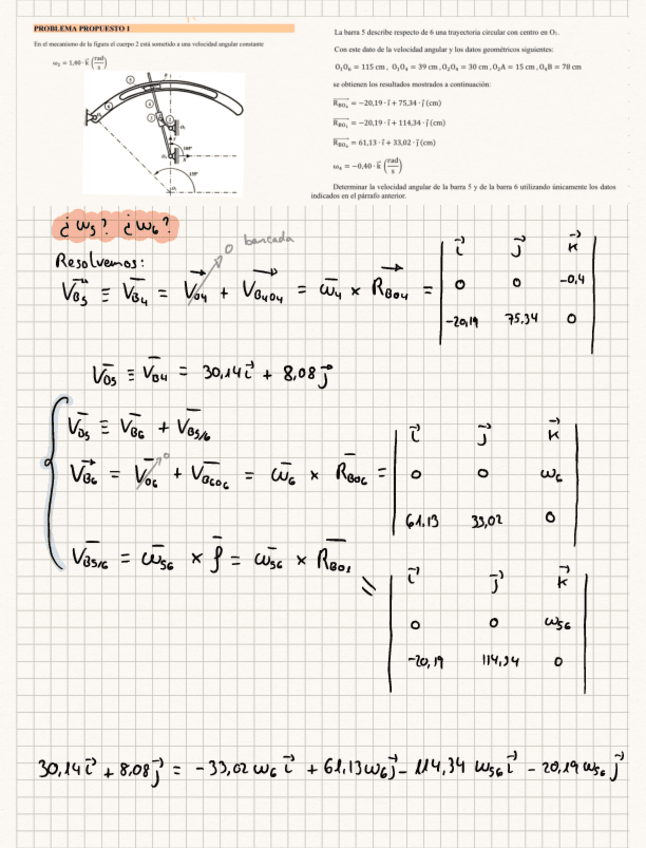 PROBLEMA PROPUESTO 1
En el mecanismo de la figura el cuerpo 2 está sometido a una velocidad angular constante
ω₂ = 1,40 · k (rad/s)
La barra 5 describe respecto de 6 una trayectoria circular con centro en O₁.
Con este dato de la velocidad angular y los datos geométricos siguientes:
O₁O₆ = 115 cm , O₁O₄ = 39 cm , O₂O₄ = 30 cm , O₂A = 15 cm , O₄B = 78 cm
se obtienen los resultados mostrados a continuación:
R_BO₄ = −20,19 · i + 75,34 · j (cm)
R_BO₁ = −20,19 · i + 114,34 · j (cm)
R_BO₆ = 61,13 · i + 33,02 · j (cm)
ω₄ = −0,40 · k (rad/s)
Determinar la velocidad angular de la barra 5 y de la barra 6 utilizando únicamente los datos
indicados en el párrafo anterior.
¿ω5? ¿ω6?
Resolvemos:
0 bancada
V_B5 ≡ V_B4 = V_O4 + V_B4O4 = ω4 × R_BO4 = | i j k |
| 0 0 -0,4 |
| -20,19 75,34 0 |
V_B5 ≡ V_B4 = 30,14 i + 8,08 j
V_B5 ≡ V_B6 + V_B5/6
V_B6 = V_O6 + V_B6O6 = ω6 × R_BO6 = | i j k |
| 0 0 ω6 |
| 61,13 33,02 0 |
V_B5/6 = ω56 × ρ = ω56 × R_BO1 = | i j k |
| 0 0 ω56 |
| -20,19 114,34 0 |
30,14 i + 8,08 j = -33,02 ω6 i + 61,13 ω6 j - 114,34 ω56 i - 20,19 ω56 j